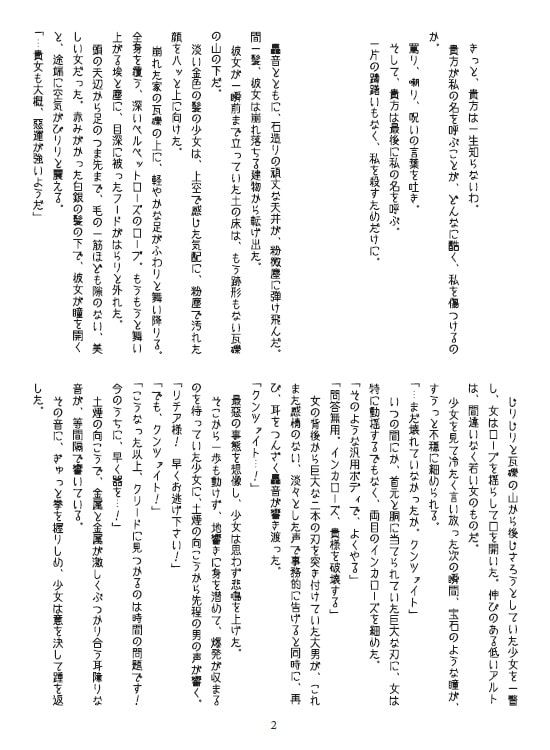 きっと、貴方は一生知らないわ。
貴方が私の名を呼ぶことが、どんなに酷く、私を傷つけるの
か。
罵り、嘲り、呪いの言葉を吐き。
そして、貴方は最後に私の名を呼ぶ。
一片の躊躇いもなく、私を殺すためだけに。
轟音とともに、石造りの頑丈な天井が、粉微塵に弾け飛んだ。
間一髪、彼女は崩れ落ちる建物から転げ出た。
彼女が一瞬前まで立っていた土の床は、もう跡形もない瓦礫
の山の下だ。
淡い金色の髪の少女は、上空で感じた気配に、粉塵で汚れた
顔を八ッと上に向けた。
崩れた家の瓦礫の上に、軽やかな足がふわりと舞い降りる。
全身を覆う、深いベルベットローズのローブ。もうもうと舞い
上がる埃と塵に、目深に被ったフードがはらりと外れた。
頭の天辺から足のつま先まで、毛の一筋ほども隙のない、美
しい女だった。赤みがかった白銀の髪の下で、彼女が瞳を開く
と、途端に空気がびりりと震える。
「…貴女も大概、悪運が強いようだ」
じりじりと瓦礫の山から後じさろうとしていた少女を一瞥
し、女はローブを揺らして口を開いた。伸びのある低いアルト
は、間違いなく若い女のものだ。
少女を見て冷たく言い放った次の瞬間、宝石のような瞳が、
すぅっと不穏に細められる。
「…まだ壊れていなかったか、クンツァイト」
いつの間にか、首元と胴に当てられていた巨大な刃に、女は
特に動揺するでもなく、両目のインカローズを細めた。
「そのような汎用ボディで、よくやる」
「問答無用。インカローズ、貴様を破壊する」
女の背後から巨大な二本の刃を突き付けていた大男が、これ
また感情のない、淡々とした声で事務的に告げると同時に、再
び、耳をつんざく轟音が響き渡った。
「クンツァイト…！」
最悪の事態を想像し、少女は思わず悲鳴を上げた。
そこから一歩も動けず、地響きに身を潜めて、爆発が収まる
のを待っていた少女に、土煙の向こうから先程の男の声が響く。
「リチア様！　早くお逃げ下さい！」
「でも、クンツァイト！」
「こうなった以上、クリードに見つかるのは時間の問題です！
今のうちに、早く器を…！」
土煙の向こうで、金属と金属が激しくぶつかり合う耳障りな
音が、等間隔で響いている。
その音に、ぎゅっと拳を握りしめ、少女は意を決して踵を返
した。
2